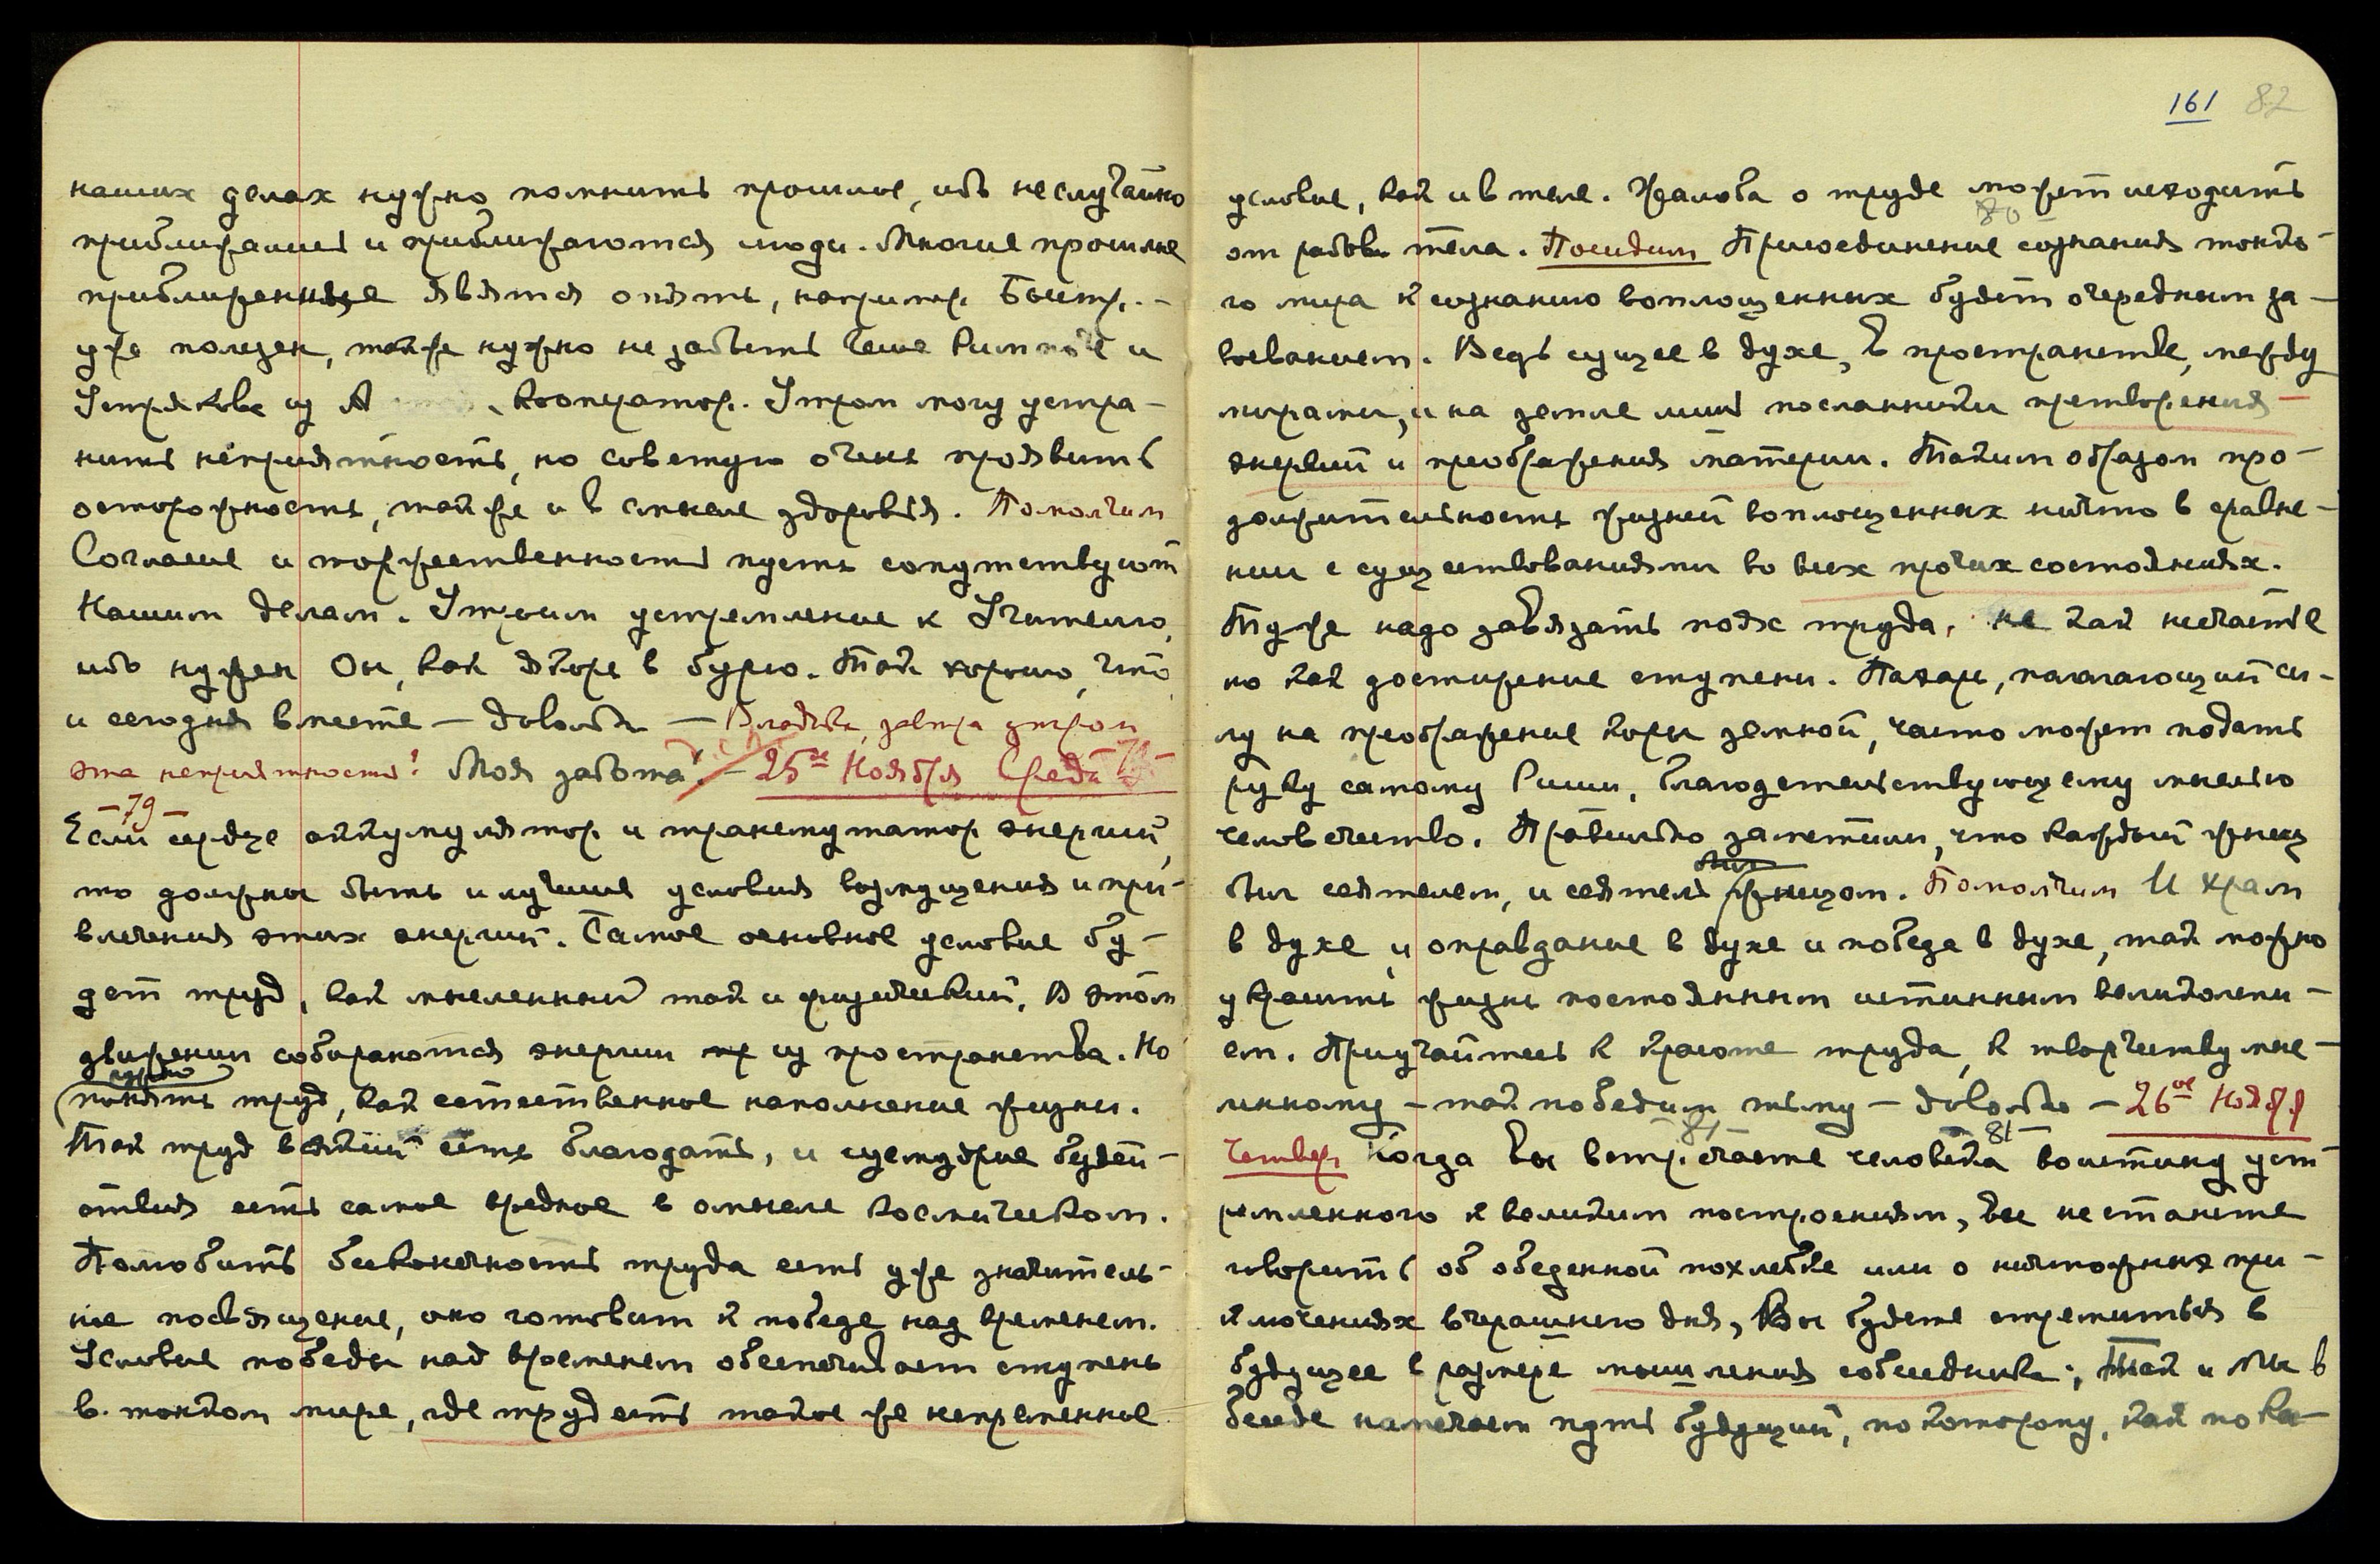 наших делах нужно помнить прошлое, ибо не случайно
приближались и приближаются люди. Многие прошлые
приближенные явятся опять, например. Быстр. –
уже полезен, также нужно не забыть Геше Римпоче и
Устрякове из А кооператор. Утром могу устра–
нить неприятность, но советую очень проявить
осторожность, также и в смысле здоровья. Помолчим
Согласие и торжественность пусть сопутствуют
Нашим делам. Утроим устремление к Учителю,
ибо нужен Он, как якорь в бурю. Так хорошо, что
и сегодня вместе – довольно – Владыка, завтра утром
эта неприятность? Моя забота. – 25ое Ноября Среда
– 79 –
Если сердце аккумулятор и трансмутатор энергий,
то должны быть и лучшие условия возмущения и при–
влечения этих энергий. Самое основное условие бу–
дет труд, как мысленный так и физический. В этом
движении собираются энергии из пространства. Но
нужно
понять труд, как естественное наполнение жизни.
Так труд всякий есть благодать, и суемудрие бездей–
ствия есть самое вредное в смысле космическом.
Полюбить бесконечность труда есть уже значитель–
ное посвящение, оно готовит к победе над временем.
Условие победы над временем обеспечивает ступень
в тонком мире, где труд есть такое же непременное
161 82
условие, как и в теле. Жалоба о труде может исходить
80
от рабов тела. Посидим Присоединение сознания тонко–
го мира к сознанию воплощенных будет очередным за–
воеванием. Ведь сущее в духе, в пространстве, между
мирами, и на земле лишь посланники претворения
энергий и преображения материи. Таким образом про–
должительность жизней воплощенных ничто в сравне–
нии с существованиями во всех прочих состояниях.
Туже надо завязать пояс труда, не как несчастье
но как достижение ступени. Пахарь, полагающий си–
лу на преображение коры земной, часто может подать
руку самому Риши, благодетельствующему мыслью
человечество. Правильно заметили, что каждый жнец
был
был сеятелем, и сеятель жнецом. Помолчим И храм
в духе и оправдание в духе и победа в духе, так можно
украсить жизнь постоянным истинным великолепи–
ем. Приучайтесь к красоте труда, к творчеству мыс–
ленному – так победим тьму – довольно – 26ое Ноября
81 81
Четверг Когда вы встречаете человека воистину уст
ремленного к великим построениям, вы не станете
говорить об обеденной похлебке или о ничтожных при–
ключениях вчерашнего дня, Вы будете стремиться в
будущее в размере мышления собеседника; Так и Мы в
беседе намечаем путь будущий, по которому, как по ка–